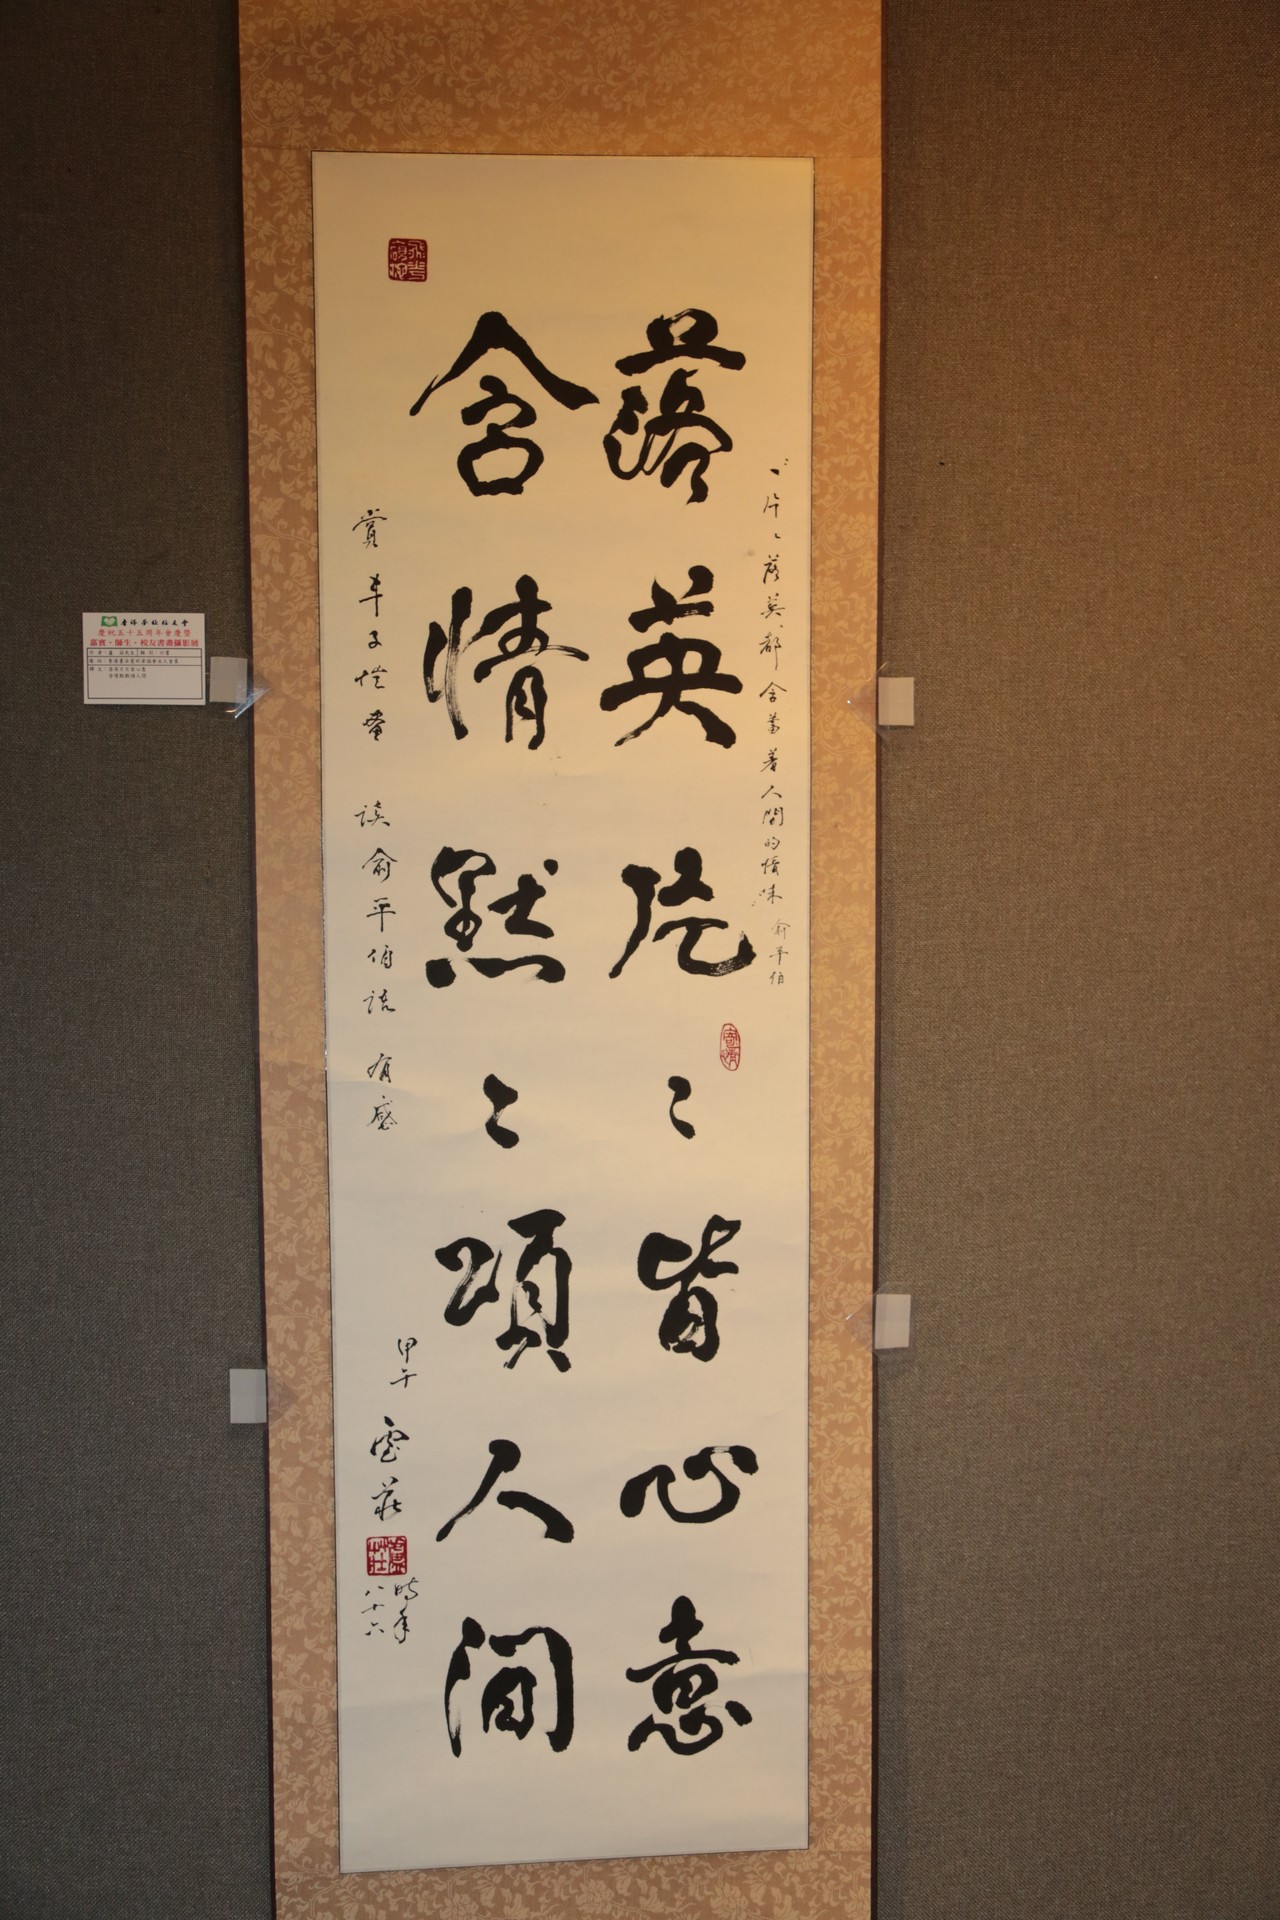 一片片落英都含蓄著人間的情味 俞平伯
落英片〻皆心意
含情默〻頌人間
賞豐子愷畫 讀俞平伯語 有感
甲午
雲莊
時年
八十六
慶祝五十五周年會慶暨
嘉賓、師生、校友書畫攝影展